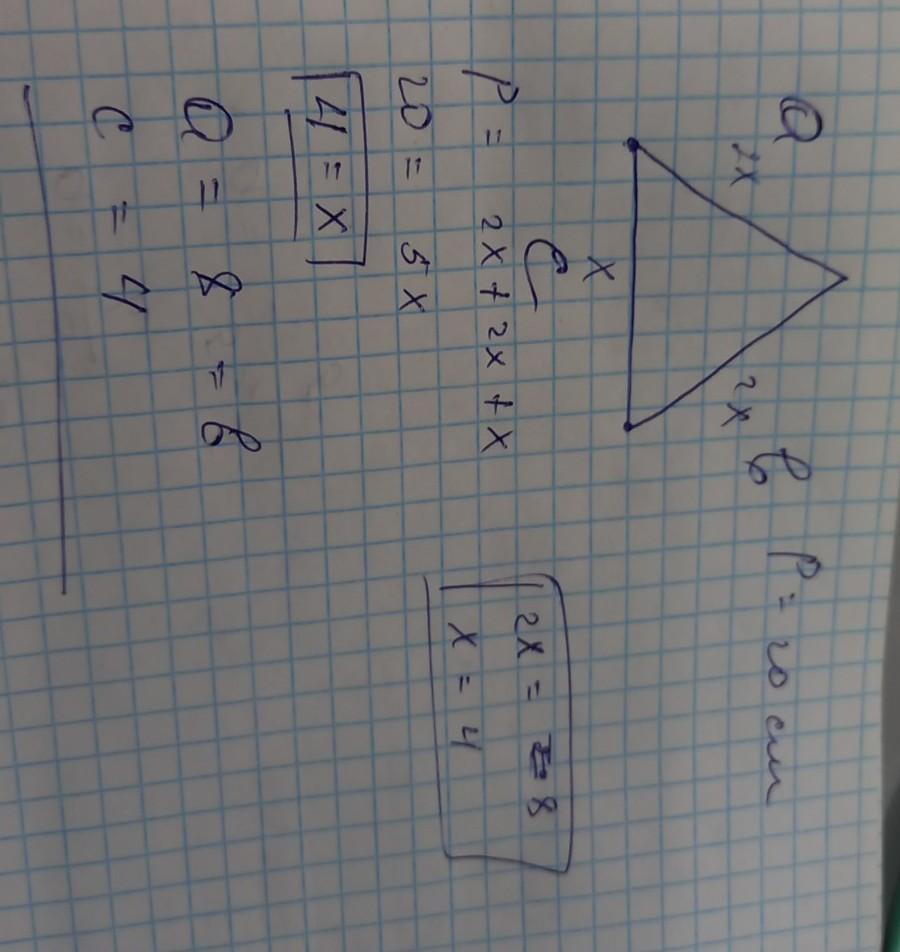 a 2x 2x b P = 20 см
x
c
P = 2x + 2x + x
20 = 5x
4 = x
a = 8 = b
c = 4
2x = 8
x = 4